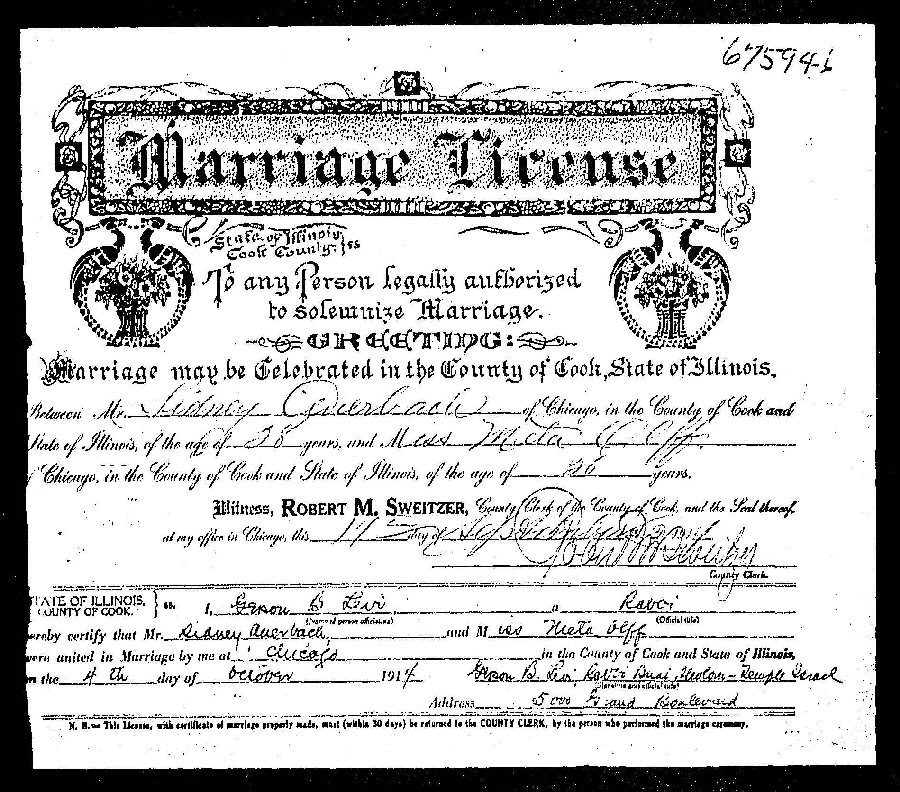 675946
Marriage License
State of Illinois,
Cook County. } ss
To any Person legally authorized
to solemnize Marriage.
GREETING:
Marriage may be Celebrated in the County of Cook, State of Illinois.
Between Mr. Sidney Auerbach of Chicago, in the County of Cook and
State of Illinois, of the age of 28 years, and Miss Meta Olff
of Chicago, in the County of Cook and State of Illinois, of the age of 26 years.
Witness, ROBERT M. SWEITZER, County Clerk of the County of Cook, and the Seal thereof,
at my office in Chicago, this 17 day of September 1914
Robert M Sweitzer
County Clerk.
STATE OF ILLINOIS, } ss.
COUNTY OF COOK.
I, Gerson B Levi, a Rabbi
(Name of person officiating) (Official title)
hereby certify that Mr. Sidney Auerbach and Miss Meta Olff
were united in Marriage by me at Chicago in the County of Cook and State of Illinois,
on the 4th day of October 1914 Gerson B. Levi, Rabbi Bnai Sholom - Temple Israel
(Signature and official title)
Address 5000 Grand Boulevard
N. B. This License, with certificate of marriage properly made, must (within 30 days) be returned to the COUNTY CLERK, by the person who performed the marriage ceremony.